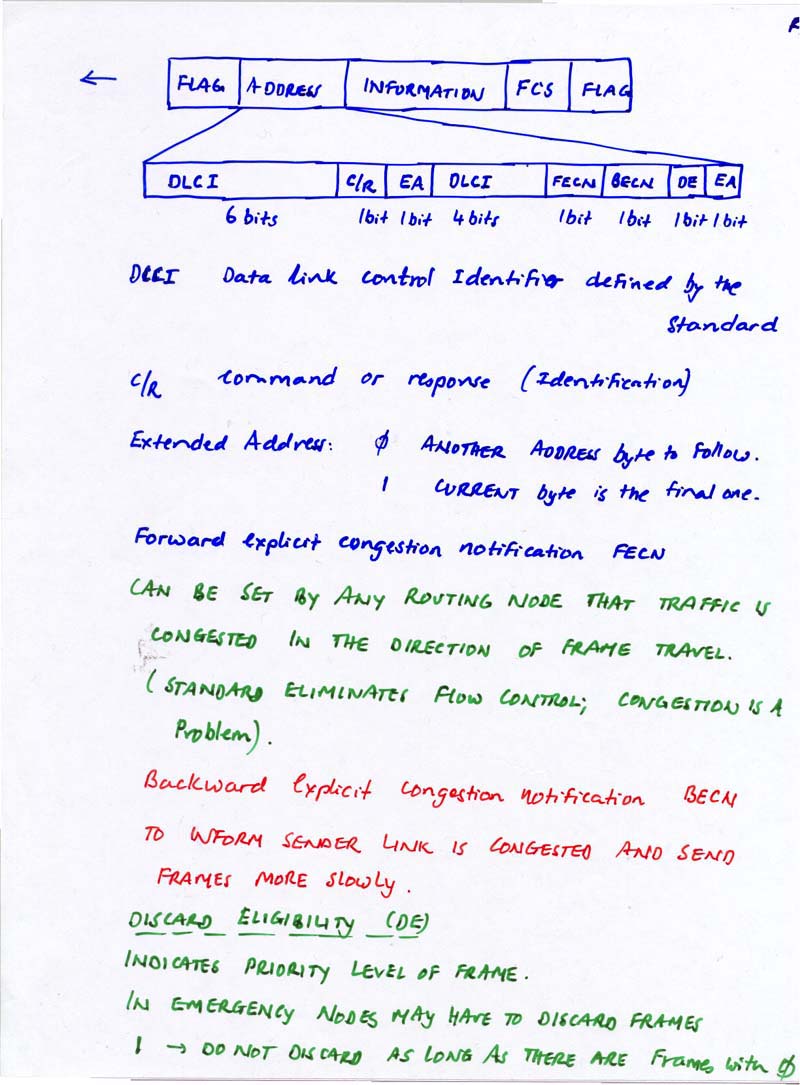 R
← FLAG ADDRESS INFORMATION FCS FLAG
DLCI C/R EA DLCI FECN BECN DE EA
6 bits 1bit 1bit 4 bits 1bit 1bit 1bit 1bit
DLCI Data link control Identifier defined by the
Standard
C/R command or response (Identification)
Extended Address: ∅ ANOTHER ADDRESS byte to follow.
1 CURRENT byte is the final one.
Forward explicit congestion notification FECN
CAN BE SET BY ANY ROUTING NODE THAT TRAFFIC IS
CONGESTED IN THE DIRECTION OF FRAME TRAVEL.
(STANDARD ELIMINATES FLOW CONTROL; CONGESTION IS A
Problem).
Backward explicit congestion notification BECN
TO INFORM SENDER LINK IS CONGESTED AND SEND
FRAMES MORE Slowly.
DISCARD ELIGIBILITY (DE)
INDICATES PRIORITY LEVEL OF FRAME.
IN EMERGENCY NODES MAY HAVE TO DISCARD FRAMES
1 → DO NOT DISCARD AS LONG AS THERE ARE Frames with ∅